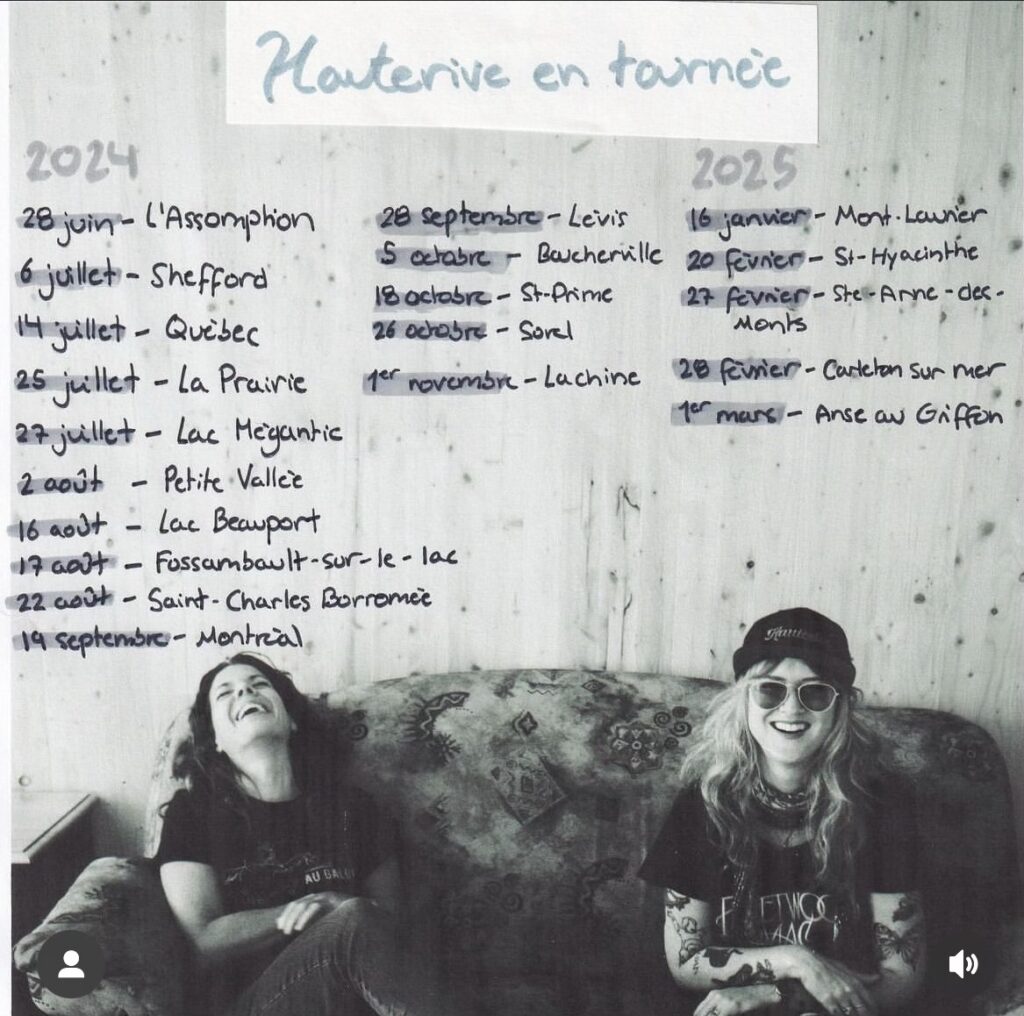 Hauterive en tournée
2024
28 juin - L'Assomption
6 juillet - Shefford
14 juillet - Québec
25 juillet - La Prairie
27 juillet - Lac Mégantic
2 août - Petite Vallée
16 août - Lac Beauport
17 août - Fossambault-sur-le-lac
22 août - Saint-Charles Borromée
19 septembre - Montréal
28 septembre - Lévis
5 octobre - Boucherville
18 octobre - St-Prime
26 octobre - Sorel
1er novembre - Lachine
2025
16 janvier - Mont-Laurier
20 février - St-Hyacinthe
27 février - Ste-Anne-des-
Monts
28 février - Carleton sur mer
1er mars - Anse au Griffon
AU